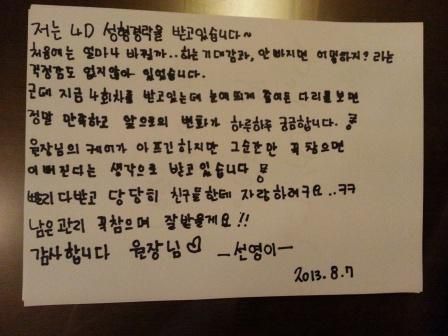 저는 4D 성형경락을 받고있습니다~
처음에는 얼마나 바뀔까..하는기대감과, 안 빠지면 어떻하지? 라는
걱정감도 없지않아 있었습니다.
근데 지금 4회차를 받고있는데 눈에띄게 줄어든 다리를 보면
정말 만족하고 앞으로의 변화가 하루하루 궁금합니다.
원장님의 케어가 아프긴하지만 그순간만 꼭 참으면
이뻐진다는 생각으로 받고 있습니다
빨리 다받고 당당히 친구들한테 자랑하려구요..ㅋㅋ
남은관리 꼭참으며 잘받을게요!!
감사합니다 원장님♡ -선영이-
2013.8.7